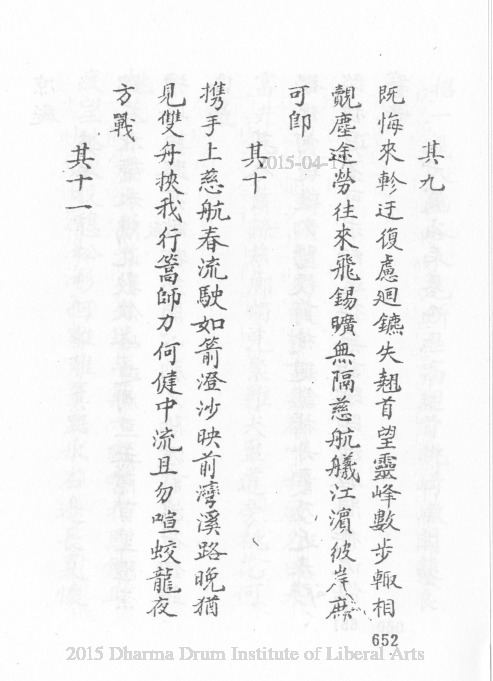 其九
既悔來軫迂復慮廻鑣失翹首望靈峰數步輙相
覿塵途勞往來飛錫曠無隔慈航艤江濱彼岸庶
可卽
其十
携手上慈航春流駛如箭澄沙映前灣溪路晚猶
見雙舟挾我行篙師力何健中流且勿喧蛟龍夜
方戰
其十一
652
2015-04-1
2015 Dharma Drum Institute of Liberal Arts